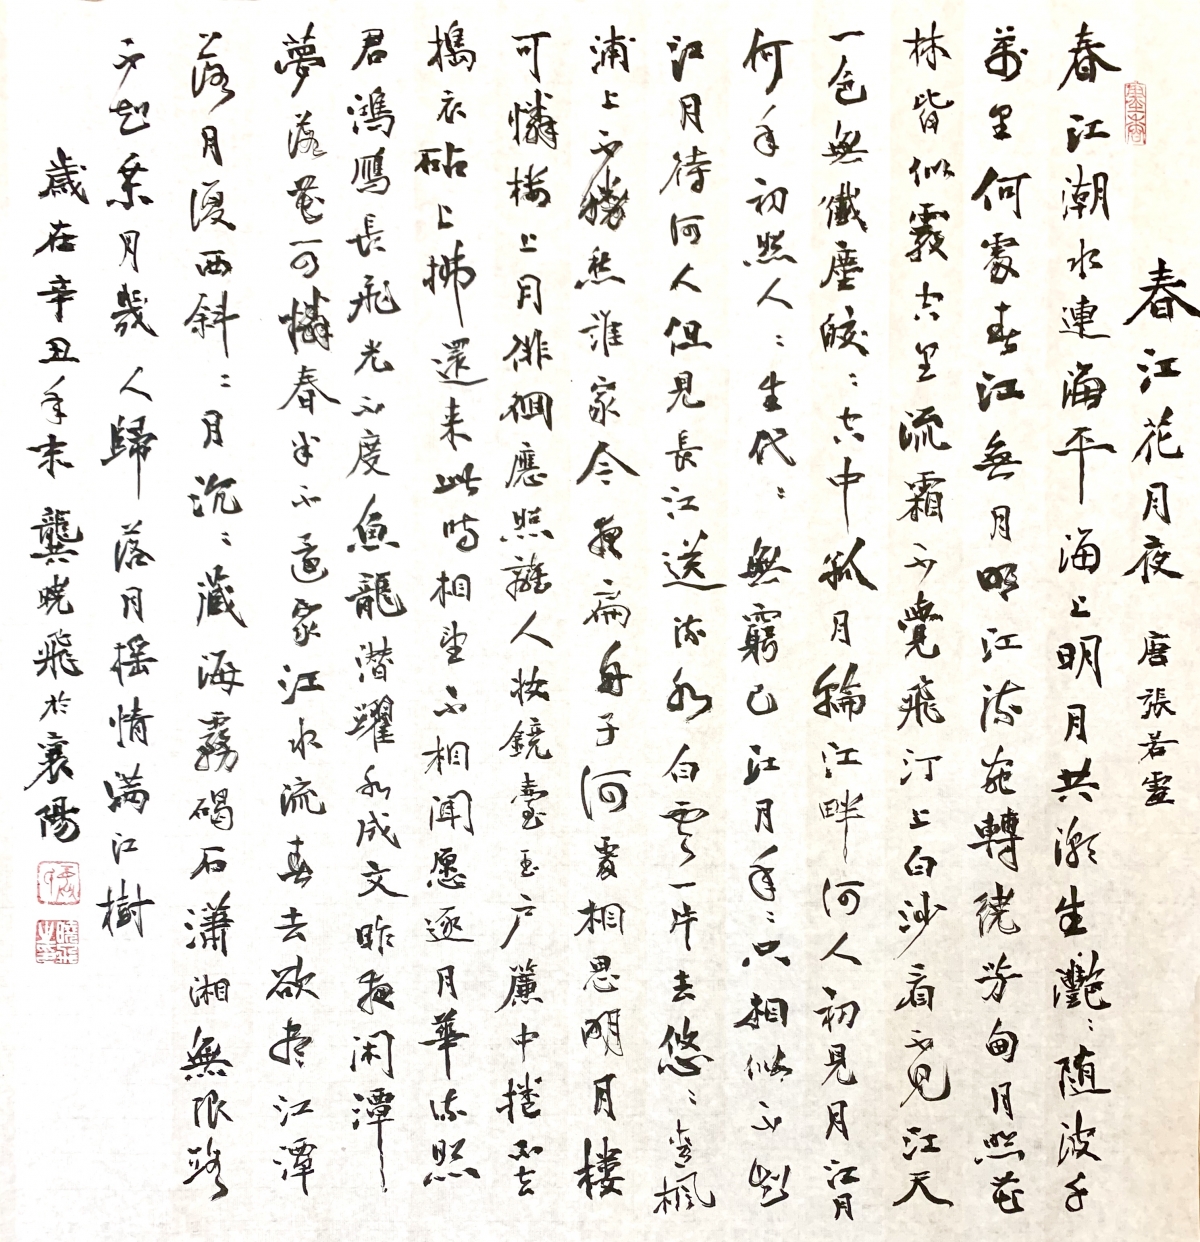 春江花月夜 唐 張若虛
春江潮水連海平海上明月共潮生灩〻随波千
萬里何處春江無月明江流宛轉繞芳甸月照花
林皆似霰空里流霜不覺飛汀上白沙看不見江天
一色無纖塵皎〻空中孤月輪江畔何人初見月江月
何年初照人〻生代〻無窮已江月年〻只相似不知
江月待何人但見長江送流水白雲一片去悠〻青楓
浦上不勝愁誰家今夜扁舟子何處相思明月樓
可憐樓上月徘徊應照離人妝鏡臺玉户簾中捲不去
搗衣砧上拂還来此時相望不相聞愿逐月華流照
君鴻鴈長飛光不度魚龍潜躍水成文昨夜闲潭
夢落花可憐春半不還家江水流春去欲盡江潭
落月復西斜〻月沉〻藏海霧碣石瀟湘無限路
不知乘月幾人歸落月揺情滿江樹
歲在辛丑年末龔曉飛於襄陽